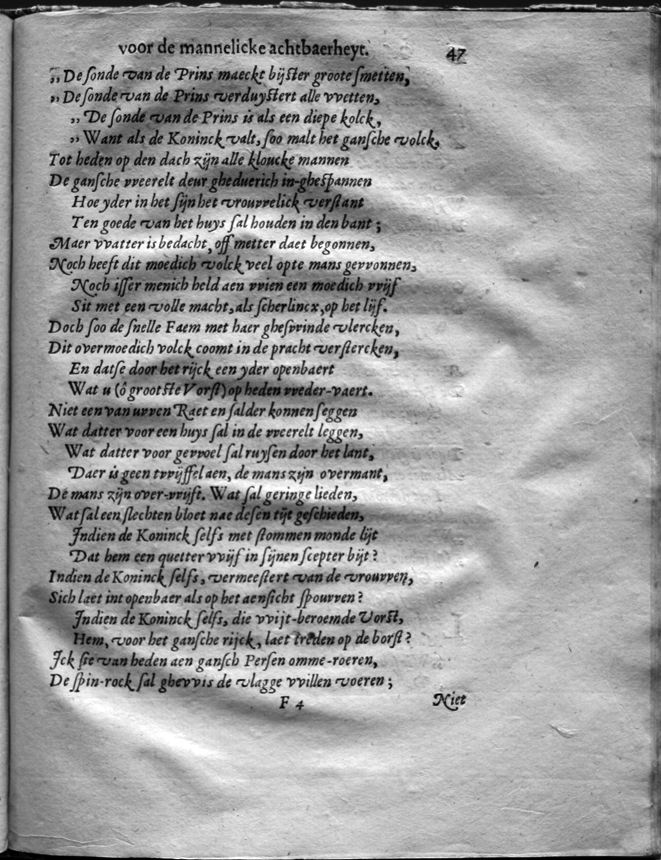 voor de mannelicke achtbaerheyt. 47
„De sonde van de Prins maeckt bijster groote smetten,
„De sonde van de Prins verduystert alle vvetten,
„De sonde van de Prins is als een diepe kolck,
„Want als de Koninck valt, soo malt het gansche volck,
Tot heden op den dach zijn alle kloucke mannen
De gansche vveerelt deur gheduerich in-ghespannen
Hoe yder in het sijn het vrouvvelick verstant
Ten goede van het huys sal houden in den bant;
Maer vvatter is bedacht, off metter daet begonnen,
Noch heeft dit moedich volck veel opte mans gevvonnen,
Noch isser menich held aen vvien een moedich vvijf
Sit met een volle macht, als scherlincx, op het lijf.
Doch soo de snelle Faem met haer ghesvvinde vlercken,
Dit overmoedich volck coomt in de pracht verstercken,
En datse door het rijck een yder openbaert
Wat u (ô grootste Vorst) op heden vveder-vaert.
Niet een van uvven Raet en salder konnen seggen
Wat datter voor een huys sal in de vveerelt leggen,
Wat datter voor gevvoel sal ruysen door het lant,
Daer is geen tvvijffel aen, de mans zijn overmant,
De mans zijn over-vvijft. Wat sal geringe lieden,
Wat sal een slechten bloet nae desen tijt geschieden,
Indien de Koninck selfs met stommen monde lijt
Dat hem een quetter vvijf in sijnen scepter bijt?
Indien de Koninck selfs, vermeestert van de vrouvven,
Sich laet int openbaer als op het aensicht spouvven?
Indien de Koninck selfs, die vvijt-beroemde Vorst,
Hem, voor het gansche rijck, laet treden op de borst?
Ick sie van heden aen gansch Persen omme-roeren,
De spin-rock sal ghevvis de vlagge vvillen voeren;
F 4 Niet